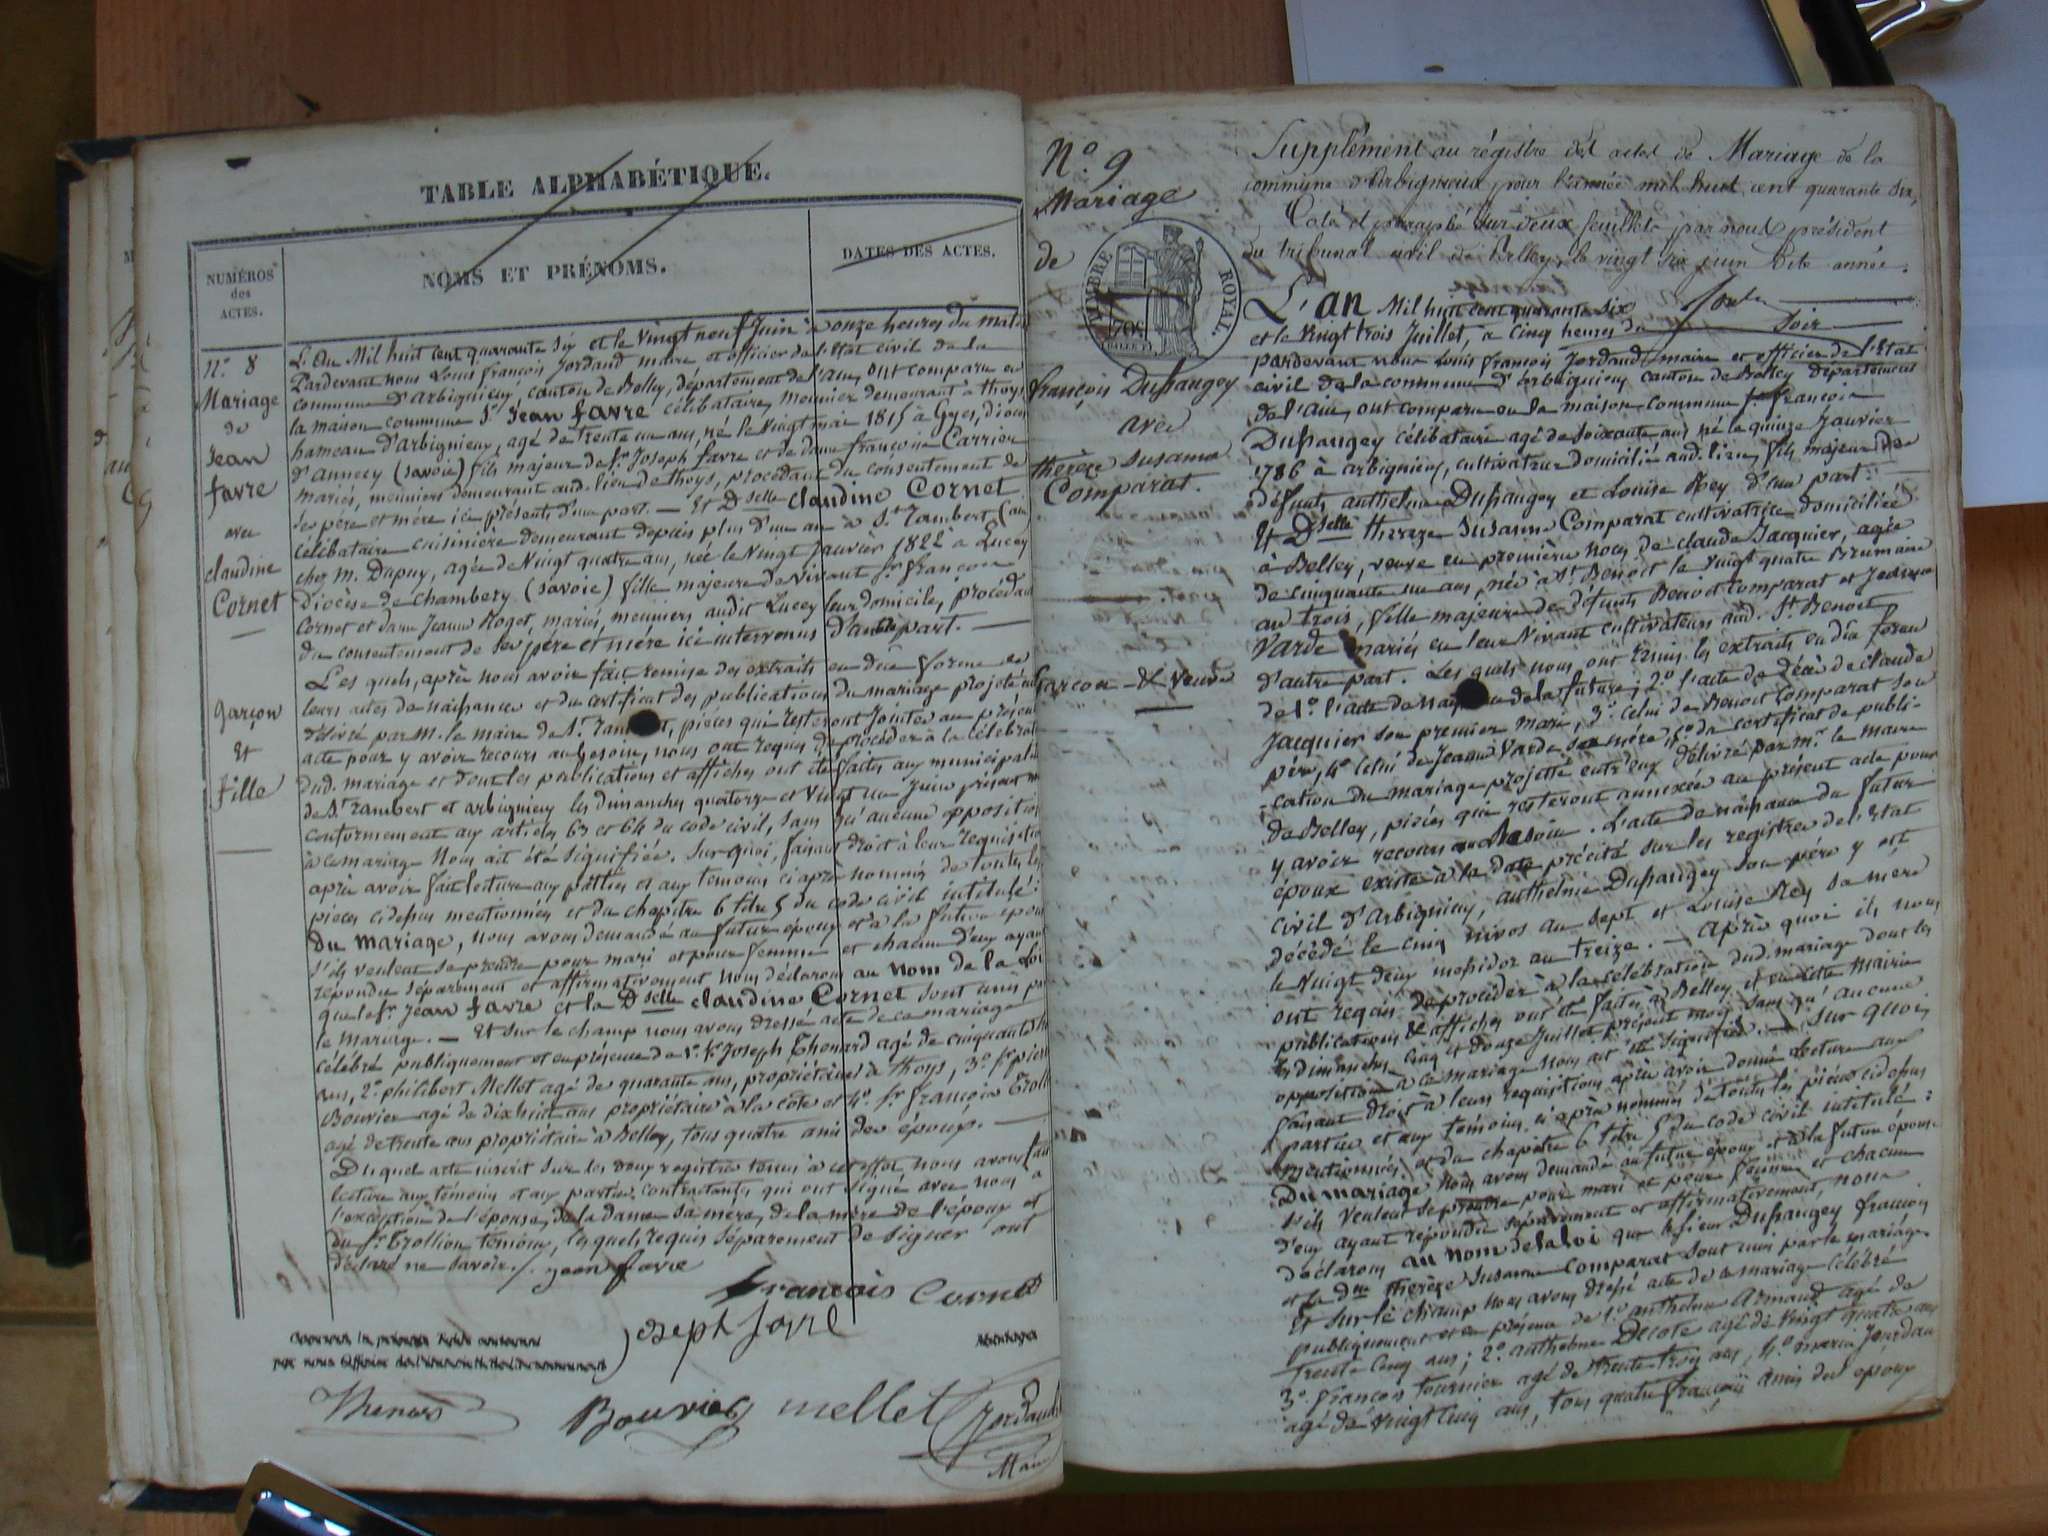 TABLE ALPHABÉTIQUE.
NUMÉROS
des
ACTES.
NOMS ET PRÉNOMS.
DATES DES ACTES.
N.º 8
Mariage
de
Jean
favre
avec
claudine
Cornet
garçon
Et
fille
L'an Mil huit cent quarante six et le vingt neuf Juin à onze heures du matin
Pardevant nous Louis françois Jordand maire et officier de l'Etat civil de la
commune d'Arbignieu, canton de Belley, département de l'ain, ont comparu en
la maison commune S.r Jean favre célibataire, meunier demeurant à thoys
hameau d'arbignieu, agé de trente un ans, né le vingt mai 1815 à
d'annecy (savoie) fils majeur de S.r Joseph favre et de dame françoise Carrier
mariés, meuniers demeurant aud. lieu de thoys, procédant du consentement de
ses père et mère ici présents d'une part. — Et Dselle claudine Cornet
célibataire cuisinière demeurant depuis plus d'un an à S.t Rambert (ain
chez m. Dupuy, agée de Vingt quatre ans, née le Vingt Janvier 1822 à Lucey
Diocèse de chambery (savoie) fille majeure de vivant S.r françois
Cornet et dame Jeanne Roget, mariés, meuniers audit Lucey leur domicile, procédant
du consentement de ses père et mère ici intervenus d'autre part. —
Les quels, après nous avoir fait remise des extraits en due forme de
leurs actes de naissance et du certificat des publications du mariage projeté
délivré par M. le maire de S.t Rambert, pièces qui resteront jointes au présent
acte pour y avoir recours au besoin, nous ont requis de procéder à la célébration
dud. mariage et dont les publications et affiches ont été faites aux municipalités
de S.t Rambert et arbignieu les dimanches quatorze et vingt un Juin présent mois
conformement aux articles 63 et 64 du code civil, sans qu'aucune opposition
à ce mariage Nous ait été signifiée. Sur quoi, faisant droit à leur requisition
après avoir fait lecture aux parties et aux temoins ci après nommés de toutes les
pièces cidessus mentionnées et du chapitre 6 titre 5 du code civil intitulé:
Du mariage, nous avons demandé au futur époux et à la future épouse
s'ils veulent se prendre pour mari et pour femme et chacun d'eux ayant
répondu séparement et affirmativement Nous déclarons au nom de la Loi
que le S.r Jean favre et la Dselle claudine Cornet sont unis par
le mariage. — Et sur le champ nous avons dressé acte de ce mariage
célébré publiquement et en présence de 1.º S.r Joseph Thenard agé de cinquante
ans, 2.º philibert Mellet agé de quarante ans, propriétaires à thoys, 3.º S.r pierre
Bouvier agé de dix huit ans propriétaire à la cote et 4.º S.r françois Trollion
agé de trente ans propriétaire à Belley, tous quatre amis des époux. —
Du quel acte inscrit sur les deux registres tenus à cet effet nous avons fait
lecture aux témoins et aux parties contractantes qui ont signé avec nous à
l'exception de l'épouse, de la dame sa mère, de la mère de l'époux et
du S.r Trollion témoin, les quels requis séparement de signer ont
déclaré ne savoir./. Jean favre
francois Cornet
Joseph favre
Thenard
Bouvier mellet Jordand
Maire
N.º 9
Mariage
de
TIMBRE ROYAL.
70c
françois Dufraugey
avec
therèse Susanne
Comparat.
garçon & Veuve
Supplément au régistre des actes de Mariage de la
commune d'Arbignieux pour l'année mil huit cent quarante six,
Coté et paraphé sur deux feuillets par nous président
du tribunal civil de Belley, le vingt six juin dite année.
L'an Mil huit cent quarante six
et le Vingt trois Juillet, à cinq heures du Soir
pardevant nous Louis françois Jordand maire et officier de l'Etat
civil de la commune d'arbignieu canton de Belley département
de l'ain, ont comparu en la maison commune S.r françois
Dufraugey célibataire agé de soixante ans né le quinze Janvier
1786 à arbignieu, cultivateur domicilié aud. lieu, fils majeur de
défunts anthelme Dufraugey et Louise Rey d'une part:
Et Dselle thereze Susanne Comparat cultivatrice domiciliée
à Belley, veuve en première noces de claude Jacquier, agée
de cinquante un ans, née à S.t Benoit le vingt quatre Brumaire
an trois, fille majeure de défunts Benoit Comparat et Jeanne
Varde mariés en leur vivant cultivateurs aud. S.t Benoit
d'autre part. Les quels nous ont remis les extraits en due forme
de 1.º l'acte de naissance de la future; 2.º l'acte de décès de claude
Jacquier son premier mari, 3.º celui de Benoit Comparat son
père, 4.º celui de Jeanne Varde sa mère, 5.º du certificat de publi-
cation du mariage projetté entr'eux délivré par M.r le maire
de Belley, pièces qui resteront annexées au présent acte pour
y avoir recours au besoin. L'acte de naissance du futur
époux existe à la date précitée sur les registres de l'Etat
civil d'Arbignieu, anthelme Dufraugey son père y est
décédé le cinq nivos an sept et Louise Rey sa mère
le vingt deux messidor an treize. — Après quoi ils nous
ont requis de procéder à la célébration dud. mariage dont les
publications & affiches ont été faites à Belley et en cette Mairie
les dimanches cinq et douze Juillet présent mois sans qu'aucune
opposition à ce mariage nous ait été signifiée. — Sur quoi
faisant droit à leurs requisitions après avoir donné lecture aux
parties et aux témoins ci après nommés de toutes les pièces cidessus
mentionnées et du chapitre 6 titre 5 du code civil intitulé:
Du mariage nous avons demandé au futur époux et à la future épouse
s'ils veulent se prendre pour mari et pour femme et chacun
d'eux ayant répondu séparement et affirmativement, nous
déclarons au nom de la loi que le sieur Dufraugey françois
et la Dme therèse Susanne Comparat sont unis par le mariage.
Et sur le champ nous avons dressé acte de ce mariage célébré
publiquement et en présence de 1.º anthelme Armand agé de
trente cinq ans; 2.º anthelme Decote agé de vingt quatre ans
3.º françois fournier agé de trente trois ans, 4.º marin Jourdan
agé de vingt cinq ans, tous quatre français amis des époux